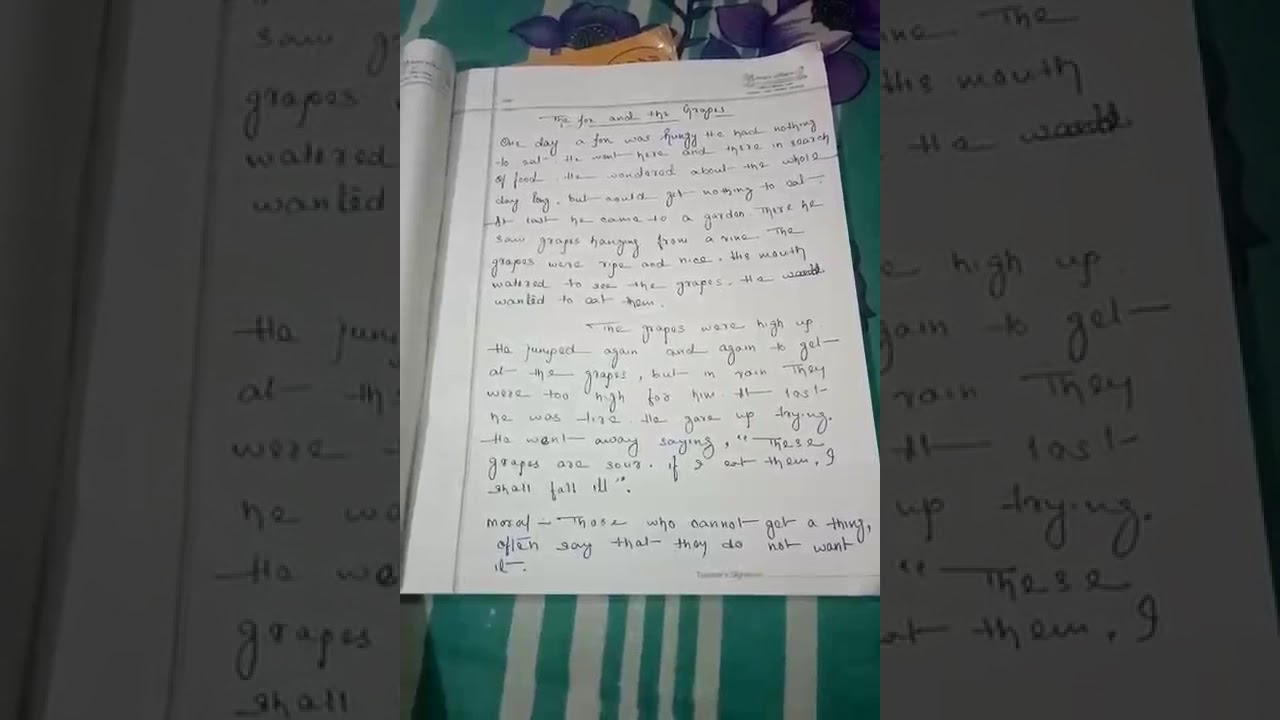 The fox and the Grapes
One day a fox was hungy He had nothing
to eat. He went here and there in search
of food. He wondered about the whole
day long. but could get nothing to eat.
At last he came to a garden. There he
saw grapes hanging from a vine. The
grapes were ripe and nice. His mouth
watered to see the grapes. He
wanted to eat them.
The grapes were high up.
He jumped again and again to get
at the grapes, but in vain They
were too high for him. At last
he was tire. He gave up trying.
He went away saying, "These
grapes are sour. if I eat them, I
shall fall ill".
Moral - Those who cannot get a thing,
often say that they do not want
it.
Teacher's Signature